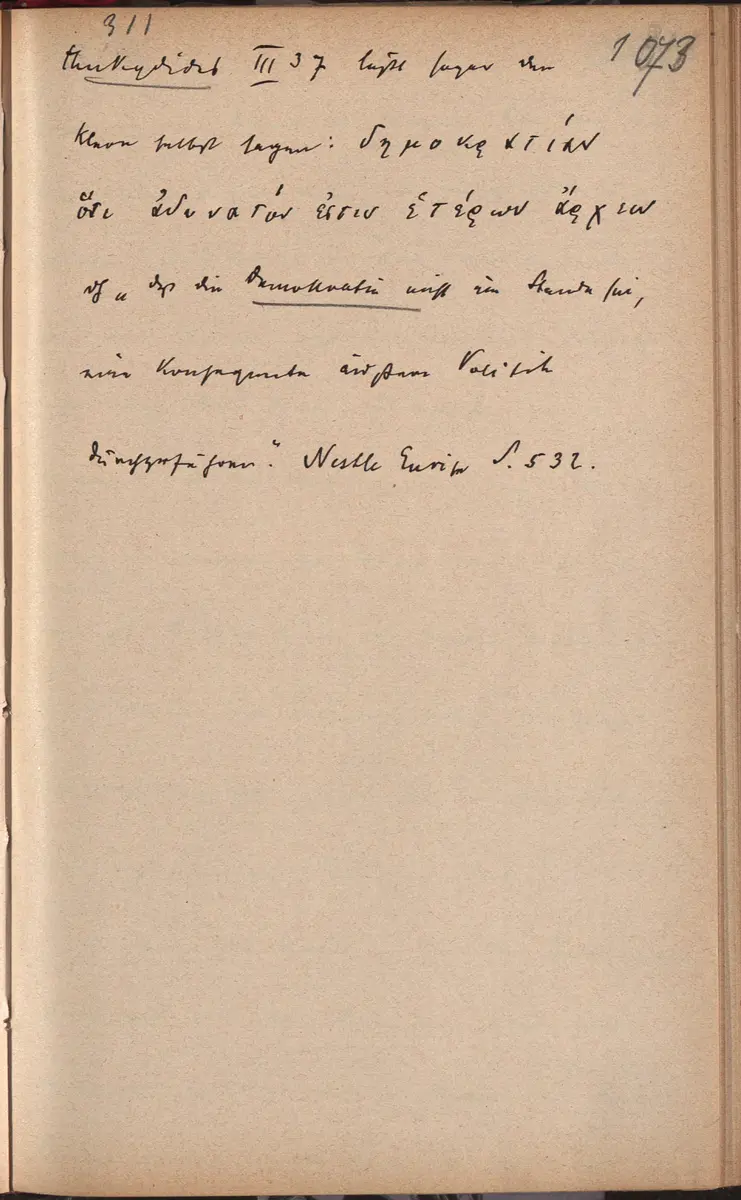 311
1073
Thukydides III 37 läßt sogar den
Kleon selbst sagen: δημοκρατίαν
ὅτι ἀδύνατόν ἐστιν ἑτέρων ἄρχειν
„daß die Demokratie nicht im Stande sei,
eine konsequente äußere Politik
durchzuführen." Nestle Eurip S. 532.